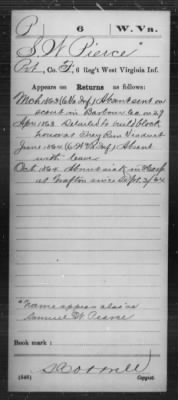 P 6 W. Va.
S. W. Pierce
Pvt, Co. F, 6 Reg't West Virginia Inf.
Appears on Returns as follows:
Mch 1863 (6 Va Inf) Absent sent on
scout in Barbour Co. on 27
Apr 1863 Detailed to build block
house at Tray Run Viaduct
June 1864 (6 W Va Inf) Absent
with leave
Oct 1864 Absent sick in Hosp
at Grafton since Sept. 2/64
"Name appears also as
Samuel W Pearce
Book mark:
(546) Copyist.